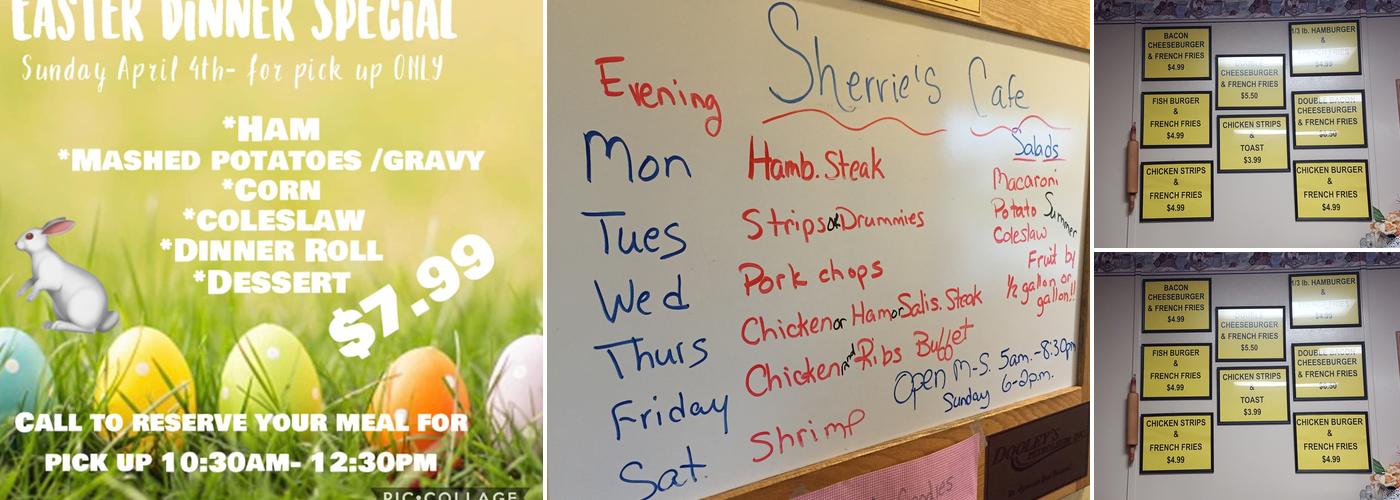 EASTER DINNER SPECIAL
Sunday April 4th- for pick up ONLY
*HAM
*MASHED POTATOES /GRAVY
*CORN
*COLESLAW
*DINNER ROLL
*DESSERT
$7.99
CALL TO RESERVE YOUR MEAL FOR
PICK UP 10:30AM- 12:30PM
PIC•COLLAGE
Sherrie's Cafe
Evening
Mon Hamb. Steak
Tues Strips or Drummies
Wed Pork chops
Thurs Chicken or Ham or Salis. Steak
Friday Chicken and Ribs Buffet
Sat. Shrimp
Salads
Macaroni
Potato Summer
Coleslaw
Fruit by
½ gallon or
gallon!!
Open M-S. 5am.-8:30pm
Sunday 6-2p.m.
DOOLEY'S
Goodies
BACON
CHEESEBURGER
& FRENCH FRIES
$4.99
FISH BURGER
&
FRENCH FRIES
$4.99
CHICKEN STRIPS
&
FRENCH FRIES
$4.99
DOUBLE
CHEESEBURGER
& FRENCH FRIES
$5.50
CHICKEN STRIPS
&
TOAST
$3.99
1/3 lb. HAMBURGER
&
FRENCH FRIES
$4.99
DOUBLE BACON
CHEESEBURGER
& FRENCH FRIES
CHICKEN BURGER
&
FRENCH FRIES
$4.99
BACON
CHEESEBURGER
& FRENCH FRIES
$4.99
FISH BURGER
&
FRENCH FRIES
$4.99
CHICKEN STRIPS
&
FRENCH FRIES
$4.99
DOUBLE
CHEESEBURGER
& FRENCH FRIES
$5.50
CHICKEN STRIPS
&
TOAST
$3.99
1/3 lb. HAMBURGER
&
FRENCH FRIES
$4.99
DOUBLE BACON
CHEESEBURGER
& FRENCH FRIES
CHICKEN BURGER
&
FRENCH FRIES
$4.99